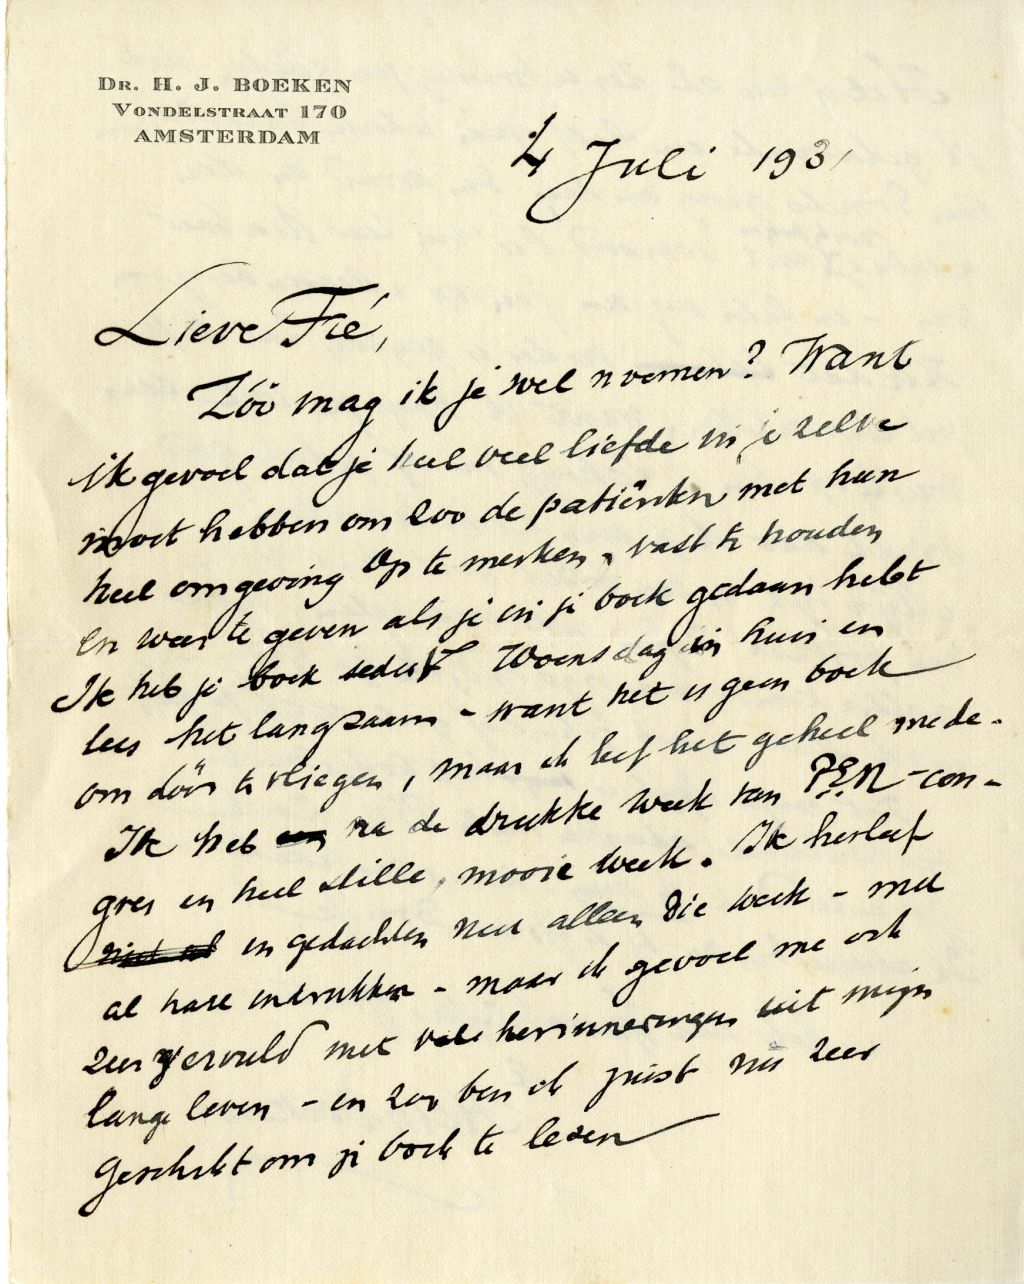 DR. H. J. BOEKEN
VONDELSTRAAT 170
AMSTERDAM
4 Juli 1931
Lieve Fré,
Zóó mag ik je wel noemen? Want
ik gevoel dat je heel veel liefde in je zelve
moet hebben om zoo de patiënten met hun
heel omgeving op te merken, vast te houden
en weer te geven als je in je boek gedaan hebt
Ik heb je boek sedert Woensdag in huis en
lees het langzaam – want het is geen boek
om dóór te vliegen, maar ik leef het geheel mede.
Ik heb na de drukke week van P.E.N-con-
gres een heel stille, mooie week. Ik herleef
in gedachten niet alleen die week – met
al hare indrukken – maar ik gevoel me ook
zeer vervuld met vele herinneringen uit mijn
lange leven – en zoo ben ik juist nu zeer
geschikt om je boek te lezen